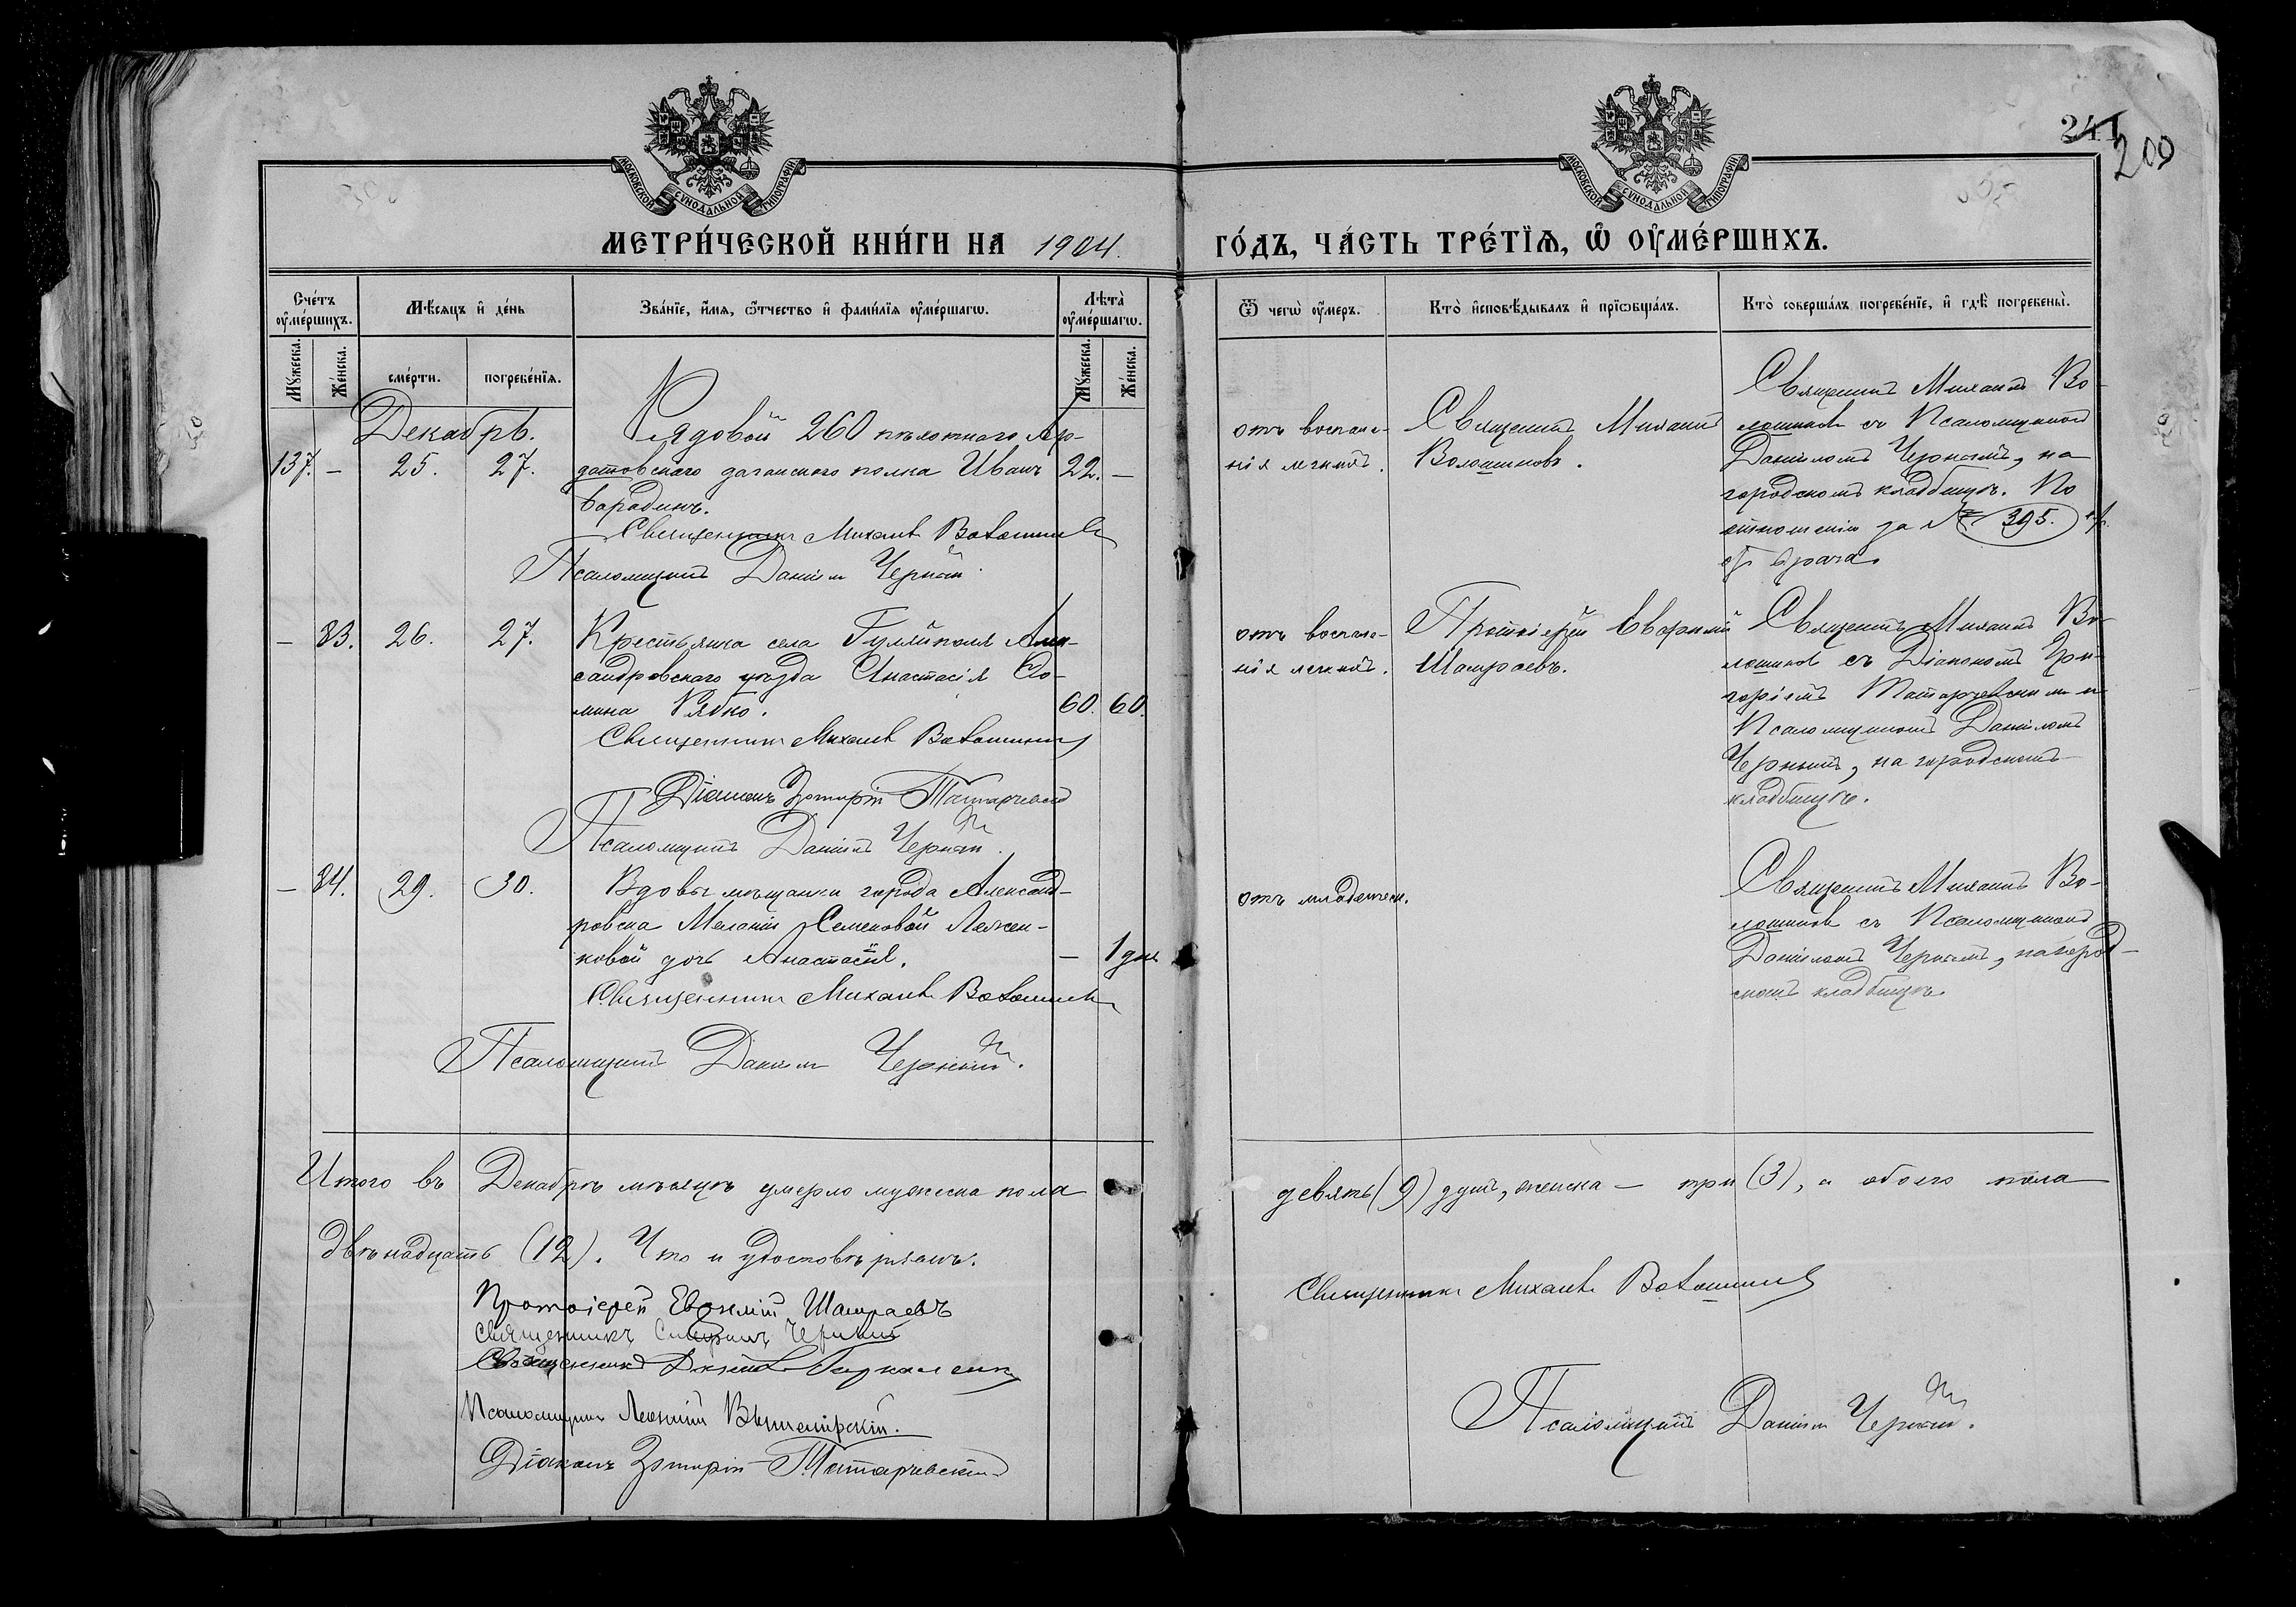 241
200
МОСКОВСКОЙ СѴНОДАЛЬНОЙ ТИПОГРАФІИ
МОСКОВСКОЙ СѴНОДАЛЬНОЙ ТИПОГРАФІИ
МЕТРИ́ЧЕСКОЙ КНИ́ГИ НА 1904. ГО́ДЪ, ЧА́СТЬ ТРЕ́ТЇѦ, Ѽ ОУ҆МЕ́РШИХЪ.
Сче́тъ оу҆ме́ршихъ.
Мѣ́сяцъ и҆ де́нь
Зва́нїе, и҆́мѧ, ѻ҆́тчество и҆ фами́лїѧ оу҆ме́ршагѡ.
Лѣта̀ оу҆ме́ршагѡ.
Ѿ чегѡ̀ оу҆́меръ.
Кто̀ и҆сповѣ́дывалъ и҆ прїѡбща́лъ.
Кто̀ соверша́лъ погребе́нїе, и҆ гдѣ̀ погребены̀.
Мꙋ́жеска.
Же́нска.
сме́рти.
погребе́нїѧ.
Мꙋ́жеска.
Же́нска.
Декабрь.
137. – 25. 27.
Рядовой 260 пѣхотнаго Ар-
датовскаго полка Иванъ 22. –
Бородинъ.
Священникъ Михаилъ Волошинов
Псаломщикъ Даніил Черный.
отъ воспале-
нія легкихъ.
Священникъ Михаилъ
Волошиновъ.
Священникъ Михаилъ Во-
лошинов съ Псаломщикомъ
Даніиломъ Чернымъ, на
городскомъ кладбищѣ. По
отношенію за № 395.
врача.
– 83. 26. 27.
Крестьянка села Гуляйполя Алек-
сандровскаго уѣзда Анастасія Ѳо-
мина Рябко. 60. 60.
Священникъ Михаилъ Волошинов
Діаконъ Григорій Татарчевскій
Псаломщикъ Даніилъ Черный.
отъ воспале-
нія легкихъ.
Протоіерей Евѳимій
Шамраевъ.
Священникъ Михаилъ Во-
лошинов съ Діакономъ Гри-
горіемъ Татарчевскимъ и
Псаломщикомъ Даніиломъ
Чернымъ, на городскомъ
кладбищѣ.
– 84. 29. 30.
Вдовы мѣщанки города Александ-
ровска Меланіи Семеновой Ляжен-
ковой дочь Анастасія. – 1 дня
Священникъ Михаилъ Волошинов
Псаломщикъ Даніил Черный.
отъ младенческ.
Священникъ Михаилъ Во-
лошинов съ Псаломщикомъ
Даніиломъ Чернымъ, на город-
скомъ кладбищѣ.
Итого въ Декабрѣ мѣсяцѣ умерло мужеска пола
девять (9) душъ, женска – три (3), а обоего пола
двѣнадцать (12). Что и удостовѣряемъ.
Протоіерей Евѳимій Шамраевъ
Священникъ Черный
Священникъ
Псаломщикъ Леонтій
Діаконъ Григорій Татарчевскій
Священникъ Михаилъ Волошинов
Псаломщикъ Даніил Черный.